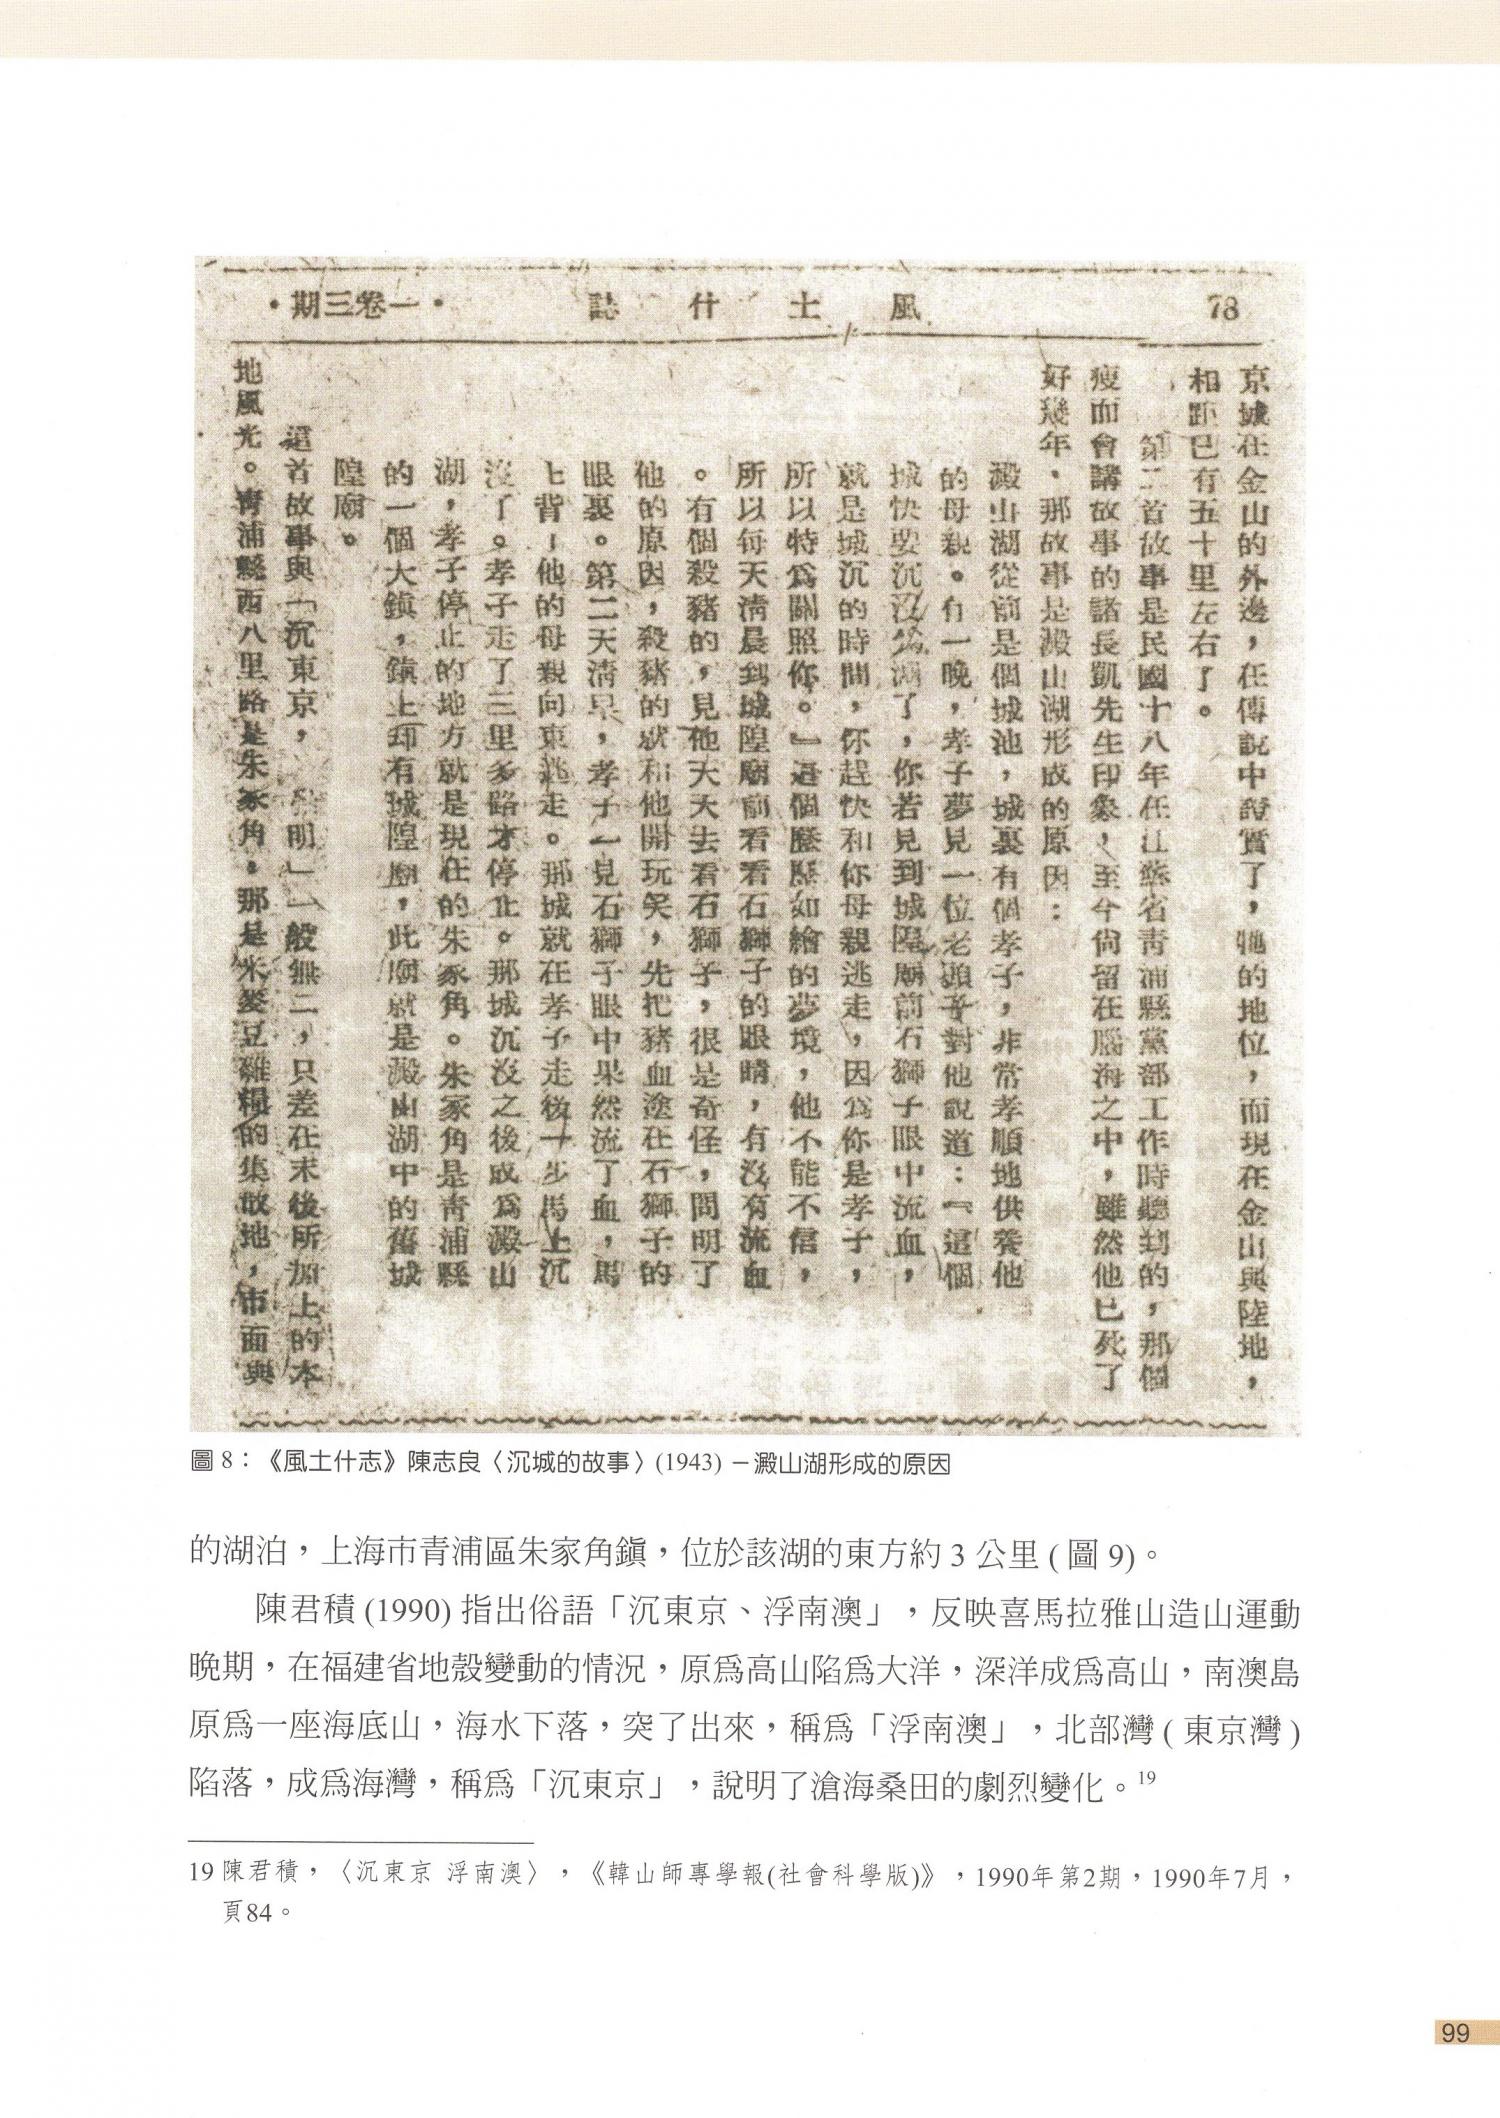 78
風土什誌
・一卷三期・
京城在金山的外邊，在傳說中證實了，牠的地位，而現在金山與陸地，
相距已有五十里左右了。
第二首故事是民國十八年在江蘇省青浦縣黨部工作時聽到的，那個
瘦而會講故事的諸長凱先生印象，至今尙留在腦海之中，雖然他已死了
好幾年，那故事是澱山湖形成的原因：
澱山湖從前是個城池，城裏有個孝子，非常孝順地供養他
的母親。有一晚，孝子夢見一位老頭子對他說道：『這個
城快要沉沒爲湖了，你若見到城隍廟前石獅子眼中流血，
就是城沉的時間，你趕快和你母親逃走，因爲你是孝子，
所以特爲關照你。』這個歷歷如繪的夢境，他不能不信，
所以每天清晨到城隍廟前看看石獅子的眼睛，有沒有流血
。有個殺豬的，見他天天去看石獅子，很是奇怪，問明了
他的原因，殺豬的就和他開玩笑，先把豬血塗在石獅子的
眼裏。第二天清早，孝子一見石獅子眼中果然流了血，馬
上背他的母親向東逃走。那城就在孝子走後一步馬上沉
沒了。孝子走了三里多路才停止。那城沉沒之後成爲澱山
湖，孝子停止的地方就是現在的朱家角。朱家角是青浦縣
的一個大鎭，鎭上却有城隍廟，此廟就是澱山湖中的舊城
隍廟。
這首故事與「沉東京，明」一般無二，只差在末後所加上的本
地風光。青浦縣西八里路是朱家角。那是米麥豆雜糧的集散地，市面與
圖 8：《風土什志》陳志良〈沉城的故事〉(1943) －澱山湖形成的原因
的湖泊，上海市青浦區朱家角鎭，位於該湖的東方約 3 公里 ( 圖 9)。
陳君積 (1990) 指出俗語「沉東京、浮南澳」，反映喜馬拉雅山造山運動
晚期，在福建省地殼變動的情況，原爲高山陷爲大洋，深洋成爲高山，南澳島
原爲一座海底山，海水下落，突了出來，稱爲「浮南澳」，北部灣 ( 東京灣 )
陷落，成爲海灣，稱爲「沉東京」，說明了滄海桑田的劇烈變化。19
19 陳君積，〈沉東京 浮南澳〉，《韓山師專學報(社會科學版)》，1990年第2期，1990年7月，
頁84。
99